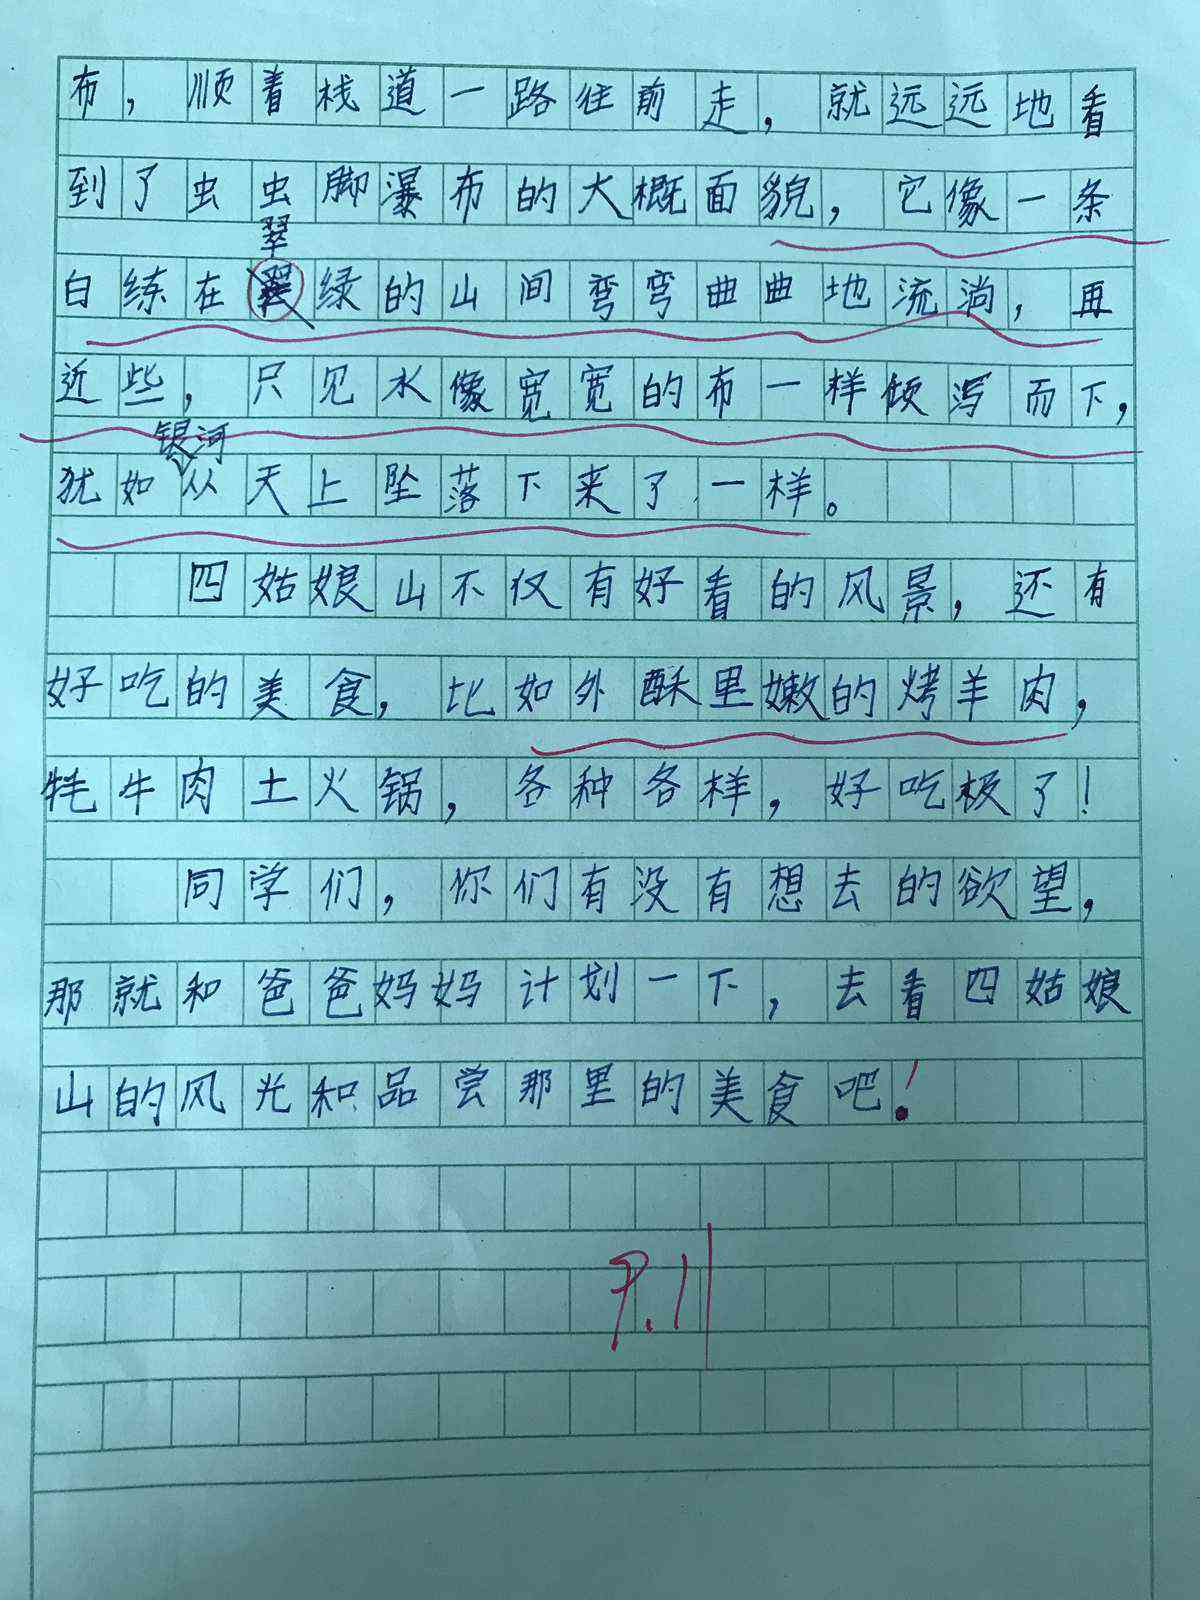 布，顺着栈道一路往前走，就远远地看
到了虫虫脚瀑布的大概面貌，它像一条
白练在翠绿的山间弯弯曲曲地流淌，再
近些，只见水像宽宽的布一样倾泻而下，
犹如银河从天上坠落下来了一样。
四姑娘山不仅有好看的风景，还有
好吃的美食，比如外酥里嫩的烤羊肉，
牦牛肉土火锅，各种各样，好吃极了！
同学们，你们有没有想去的欲望，
那就和爸爸妈妈计划一下，去看四姑娘
山的风光和品尝那里的美食吧！
9.11